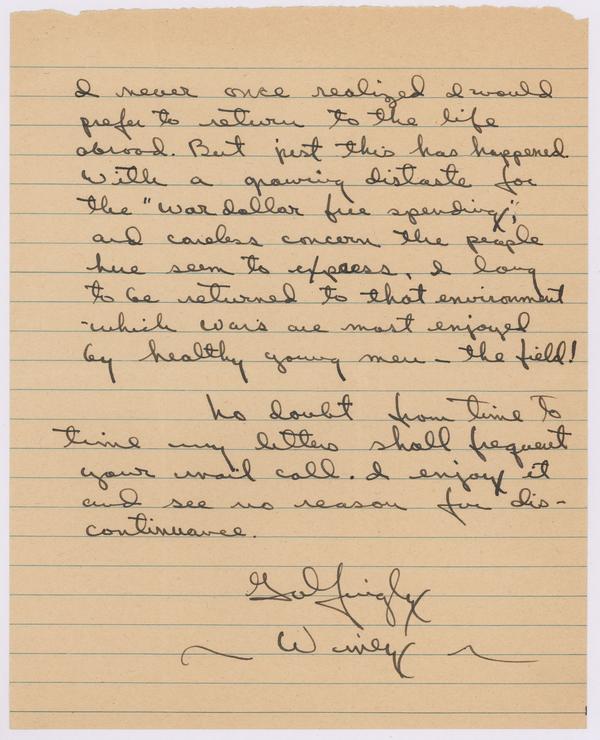 I never once realized I would
prefer to return to the life
abroad. But just this has happened
with a growing distaste for
the "war dollar free spending",
and careless concern the people
here seem to express, I long
to be returned to that environment
-which wars are most enjoyed
by healthy young men - the field!
No doubt from time to
time my letters shall frequent
your mail call. I enjoy it
and see no reason for dis-
continuance.